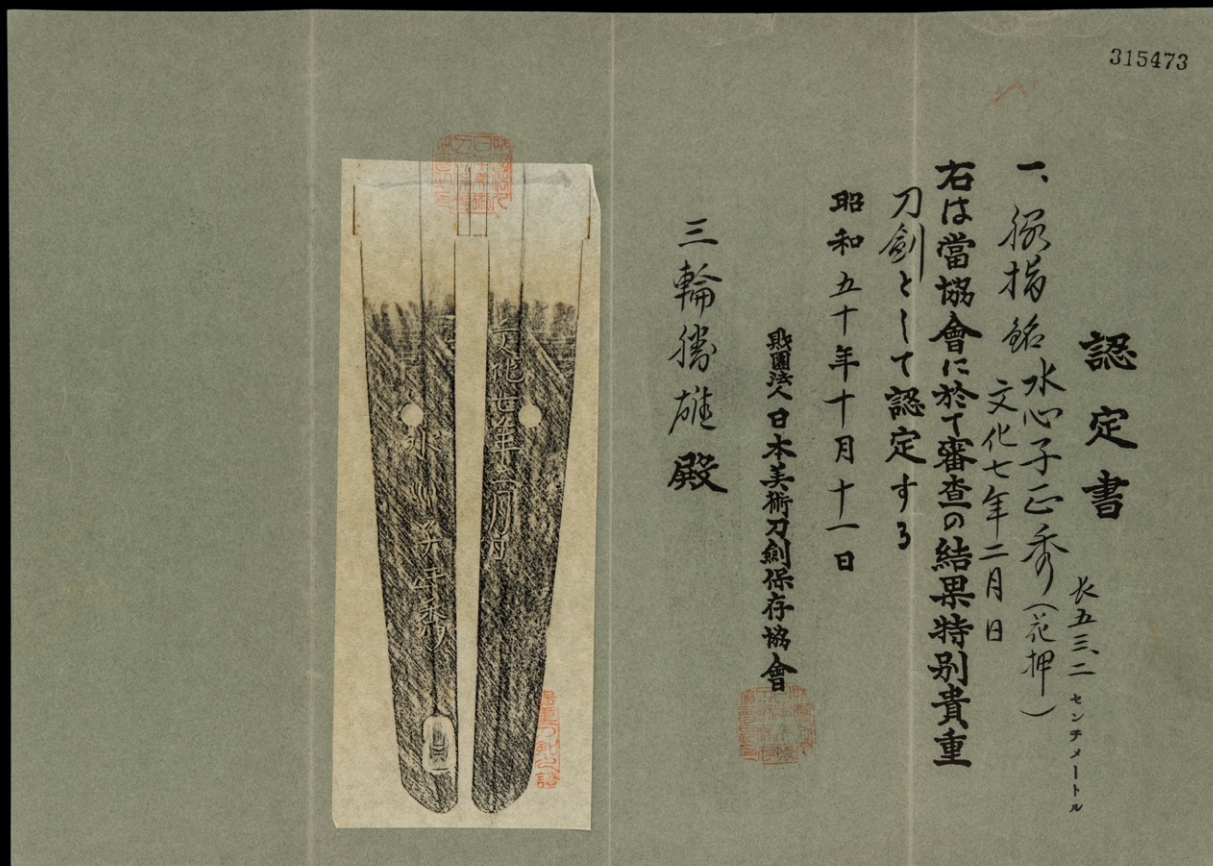 315473
認定書
一、脇指 銘 水心子正秀(花押)
長五三、二センチメートル
文化七年二月日
右は當協會に於て審査の結果特別貴重
刀劍として認定する
昭和五十年十月十一日
財團法人日本美術刀劍保存協會
三輪勝雄殿
文化七年二月日
水心子正秀